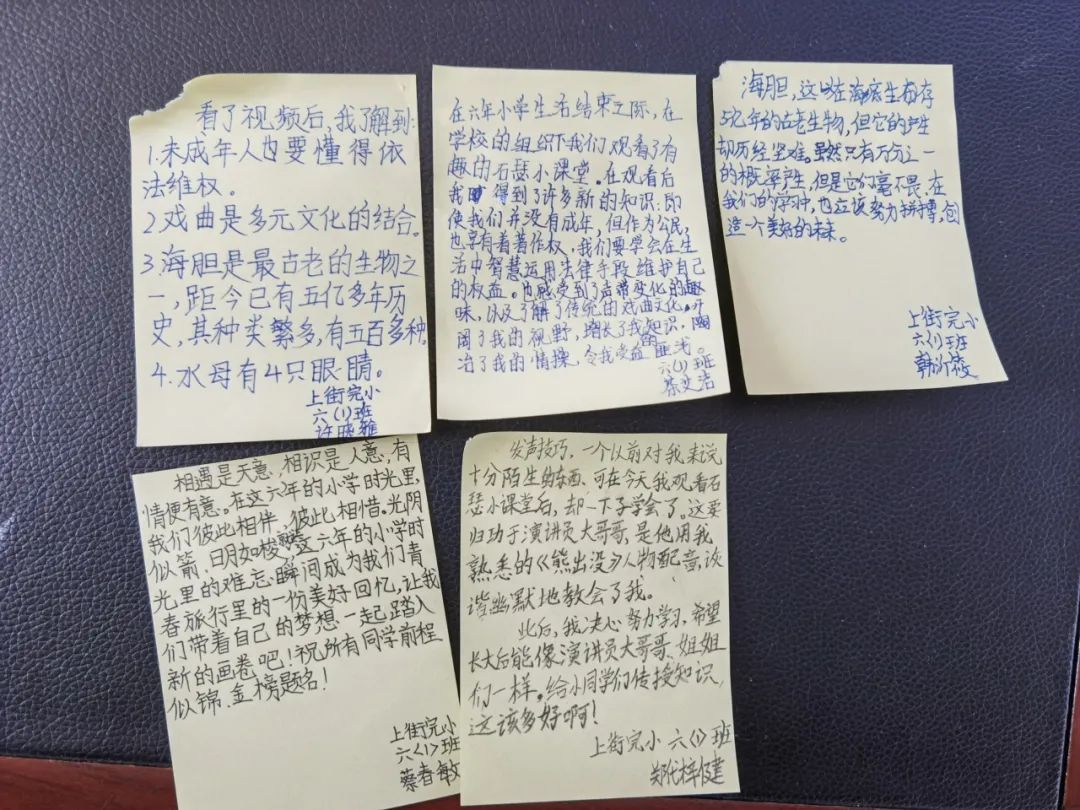 看了视频后,我了解到:
1.未成年人也要懂得依
法维权。
2.戏曲是多元文化的结合。
3.海胆是最古老的生物之
一,距今已有五亿多年历
史,其种类繁多,有五百多种。
4.水母有4只眼睛。
上街完小
六(1)班
许晓雅
在六年小学生活结束之际,在
学校的组织下我们观看了有
趣的石瑟小课堂。在观看后
我得到了许多新的知识:即
使我们并没有成年,但作为公民,
也享有着著作权,我们要学会在生
活中智慧运用法律手段维护自己
的权益。也感受到了声带变化的趣
味,以及了解了传统的戏曲文化。开
阔了我的视野,增长了我的知识,陶
冶了我的情操,令我受益匪浅。
六(1)班
海胆,这些在海底生存
5亿年的古老生物,但它的产生
却历经坚难。虽然只有万分之一
的概率产生,但是它们毫不畏,在
我们的学习中,也应该努力拼搏,创
造一个美好的未来。
上街完小
六(1)班
相遇是天意,相识是人意,有
情便有意。在这六年的小学时光里,
我们彼此相伴,彼此相惜。光阴
似箭,日月如梭,这六年的小学时
光里的难忘瞬间成为我们青
春旅行里的一份美好回忆,让我
们带着自己的梦想一起,踏入
新的画卷吧!祝所有同学前程
似锦,金榜题名!
上街完小
六<1>班
蔡春敏
发声技巧,一个以前对我来说
十分陌生的东西,可在今天我观看石
瑟小课堂后,却一下子学会了。这要
归功于演讲员大哥哥,是他用我
熟悉的《熊出没》人物配音,诙
谐幽默地教会了我。
此后,我决心努力学习,希望
长大后能像演讲员大哥哥、姐姐
们一样。给小同学们传授知识,
这该多好啊!
上街完小 六(1)班
郑代梓健